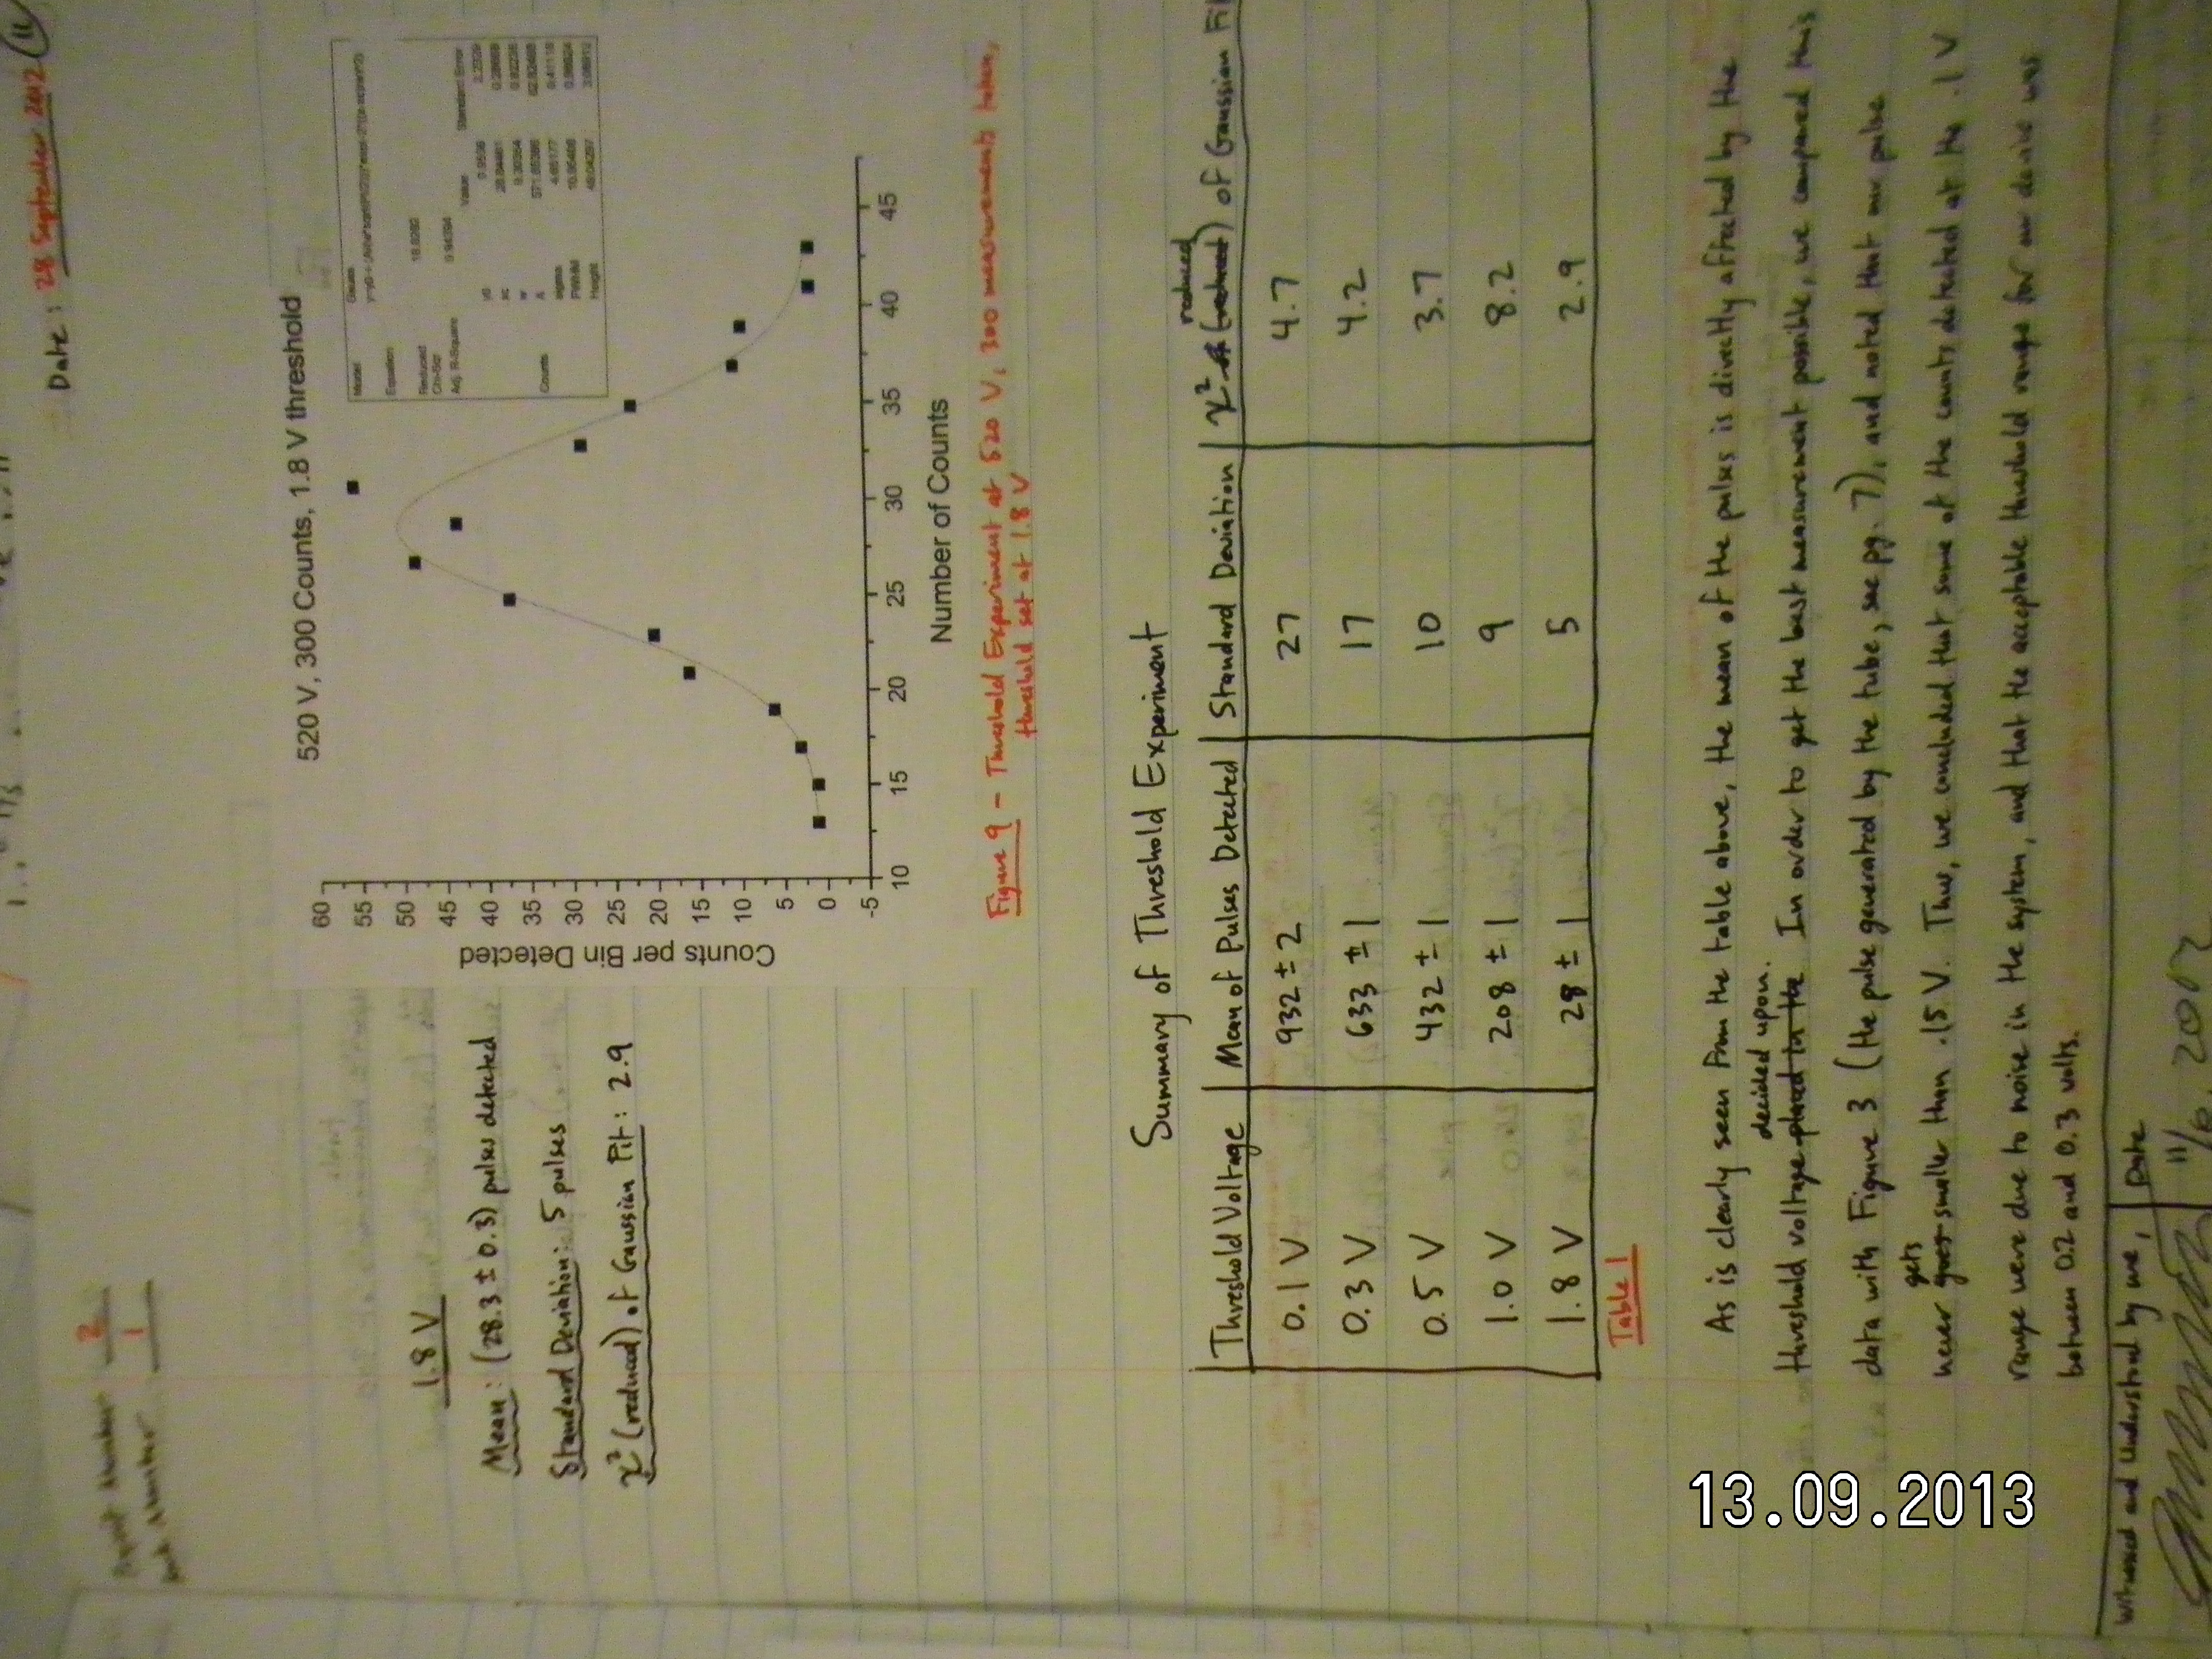 Date: 28 September 2012 11
2
1
1.8 V
Mean: (28.3 ± 0.3) pulses detected
Standard Deviation: 5 pulses
χ² (reduced) of Gaussian Fit: 2.9
520 V, 300 Counts, 1.8 V threshold
Counts per Bin Detected
60
55
50
45
40
35
30
25
20
15
10
5
0
-5
10 15 20 25 30 35 40 45
Number of Counts
Model Gauss
Equation
Reduced Chi-Sqr
Adj. R-Square
Value Standard Error
Counts
Figure 9 - Threshold Experiment at 520 V, 300 measurements taken,
threshold set at 1.8 V
Summary of Threshold Experiment
Threshold Voltage Mean of Pulses Detected Standard Deviation χ² (reduced) of Gaussian Fi
0.1 V 932 ± 2 27 4.7
0.3 V 633 ± 1 17 4.2
0.5 V 432 ± 1 10 3.7
1.0 V 208 ± 1 9 8.2
1.8 V 28 ± 1 5 2.9
Table 1
As is clearly seen from the table above, the mean of the pulses is directly affected by the
threshold voltage decided upon. In order to get the best measurement possible, we compared this
data with Figure 3 (the pulse generated by the tube, see pg. 7), and noted that our pulse
never gets smaller than .15 V. Thus, we concluded that some of the counts detected at the .1 V
range were due to noise in the system, and that the acceptable threshold range for our device was
between 0.2 and 0.3 volts.
Witnessed and Understood by me, Date
13.09.2013